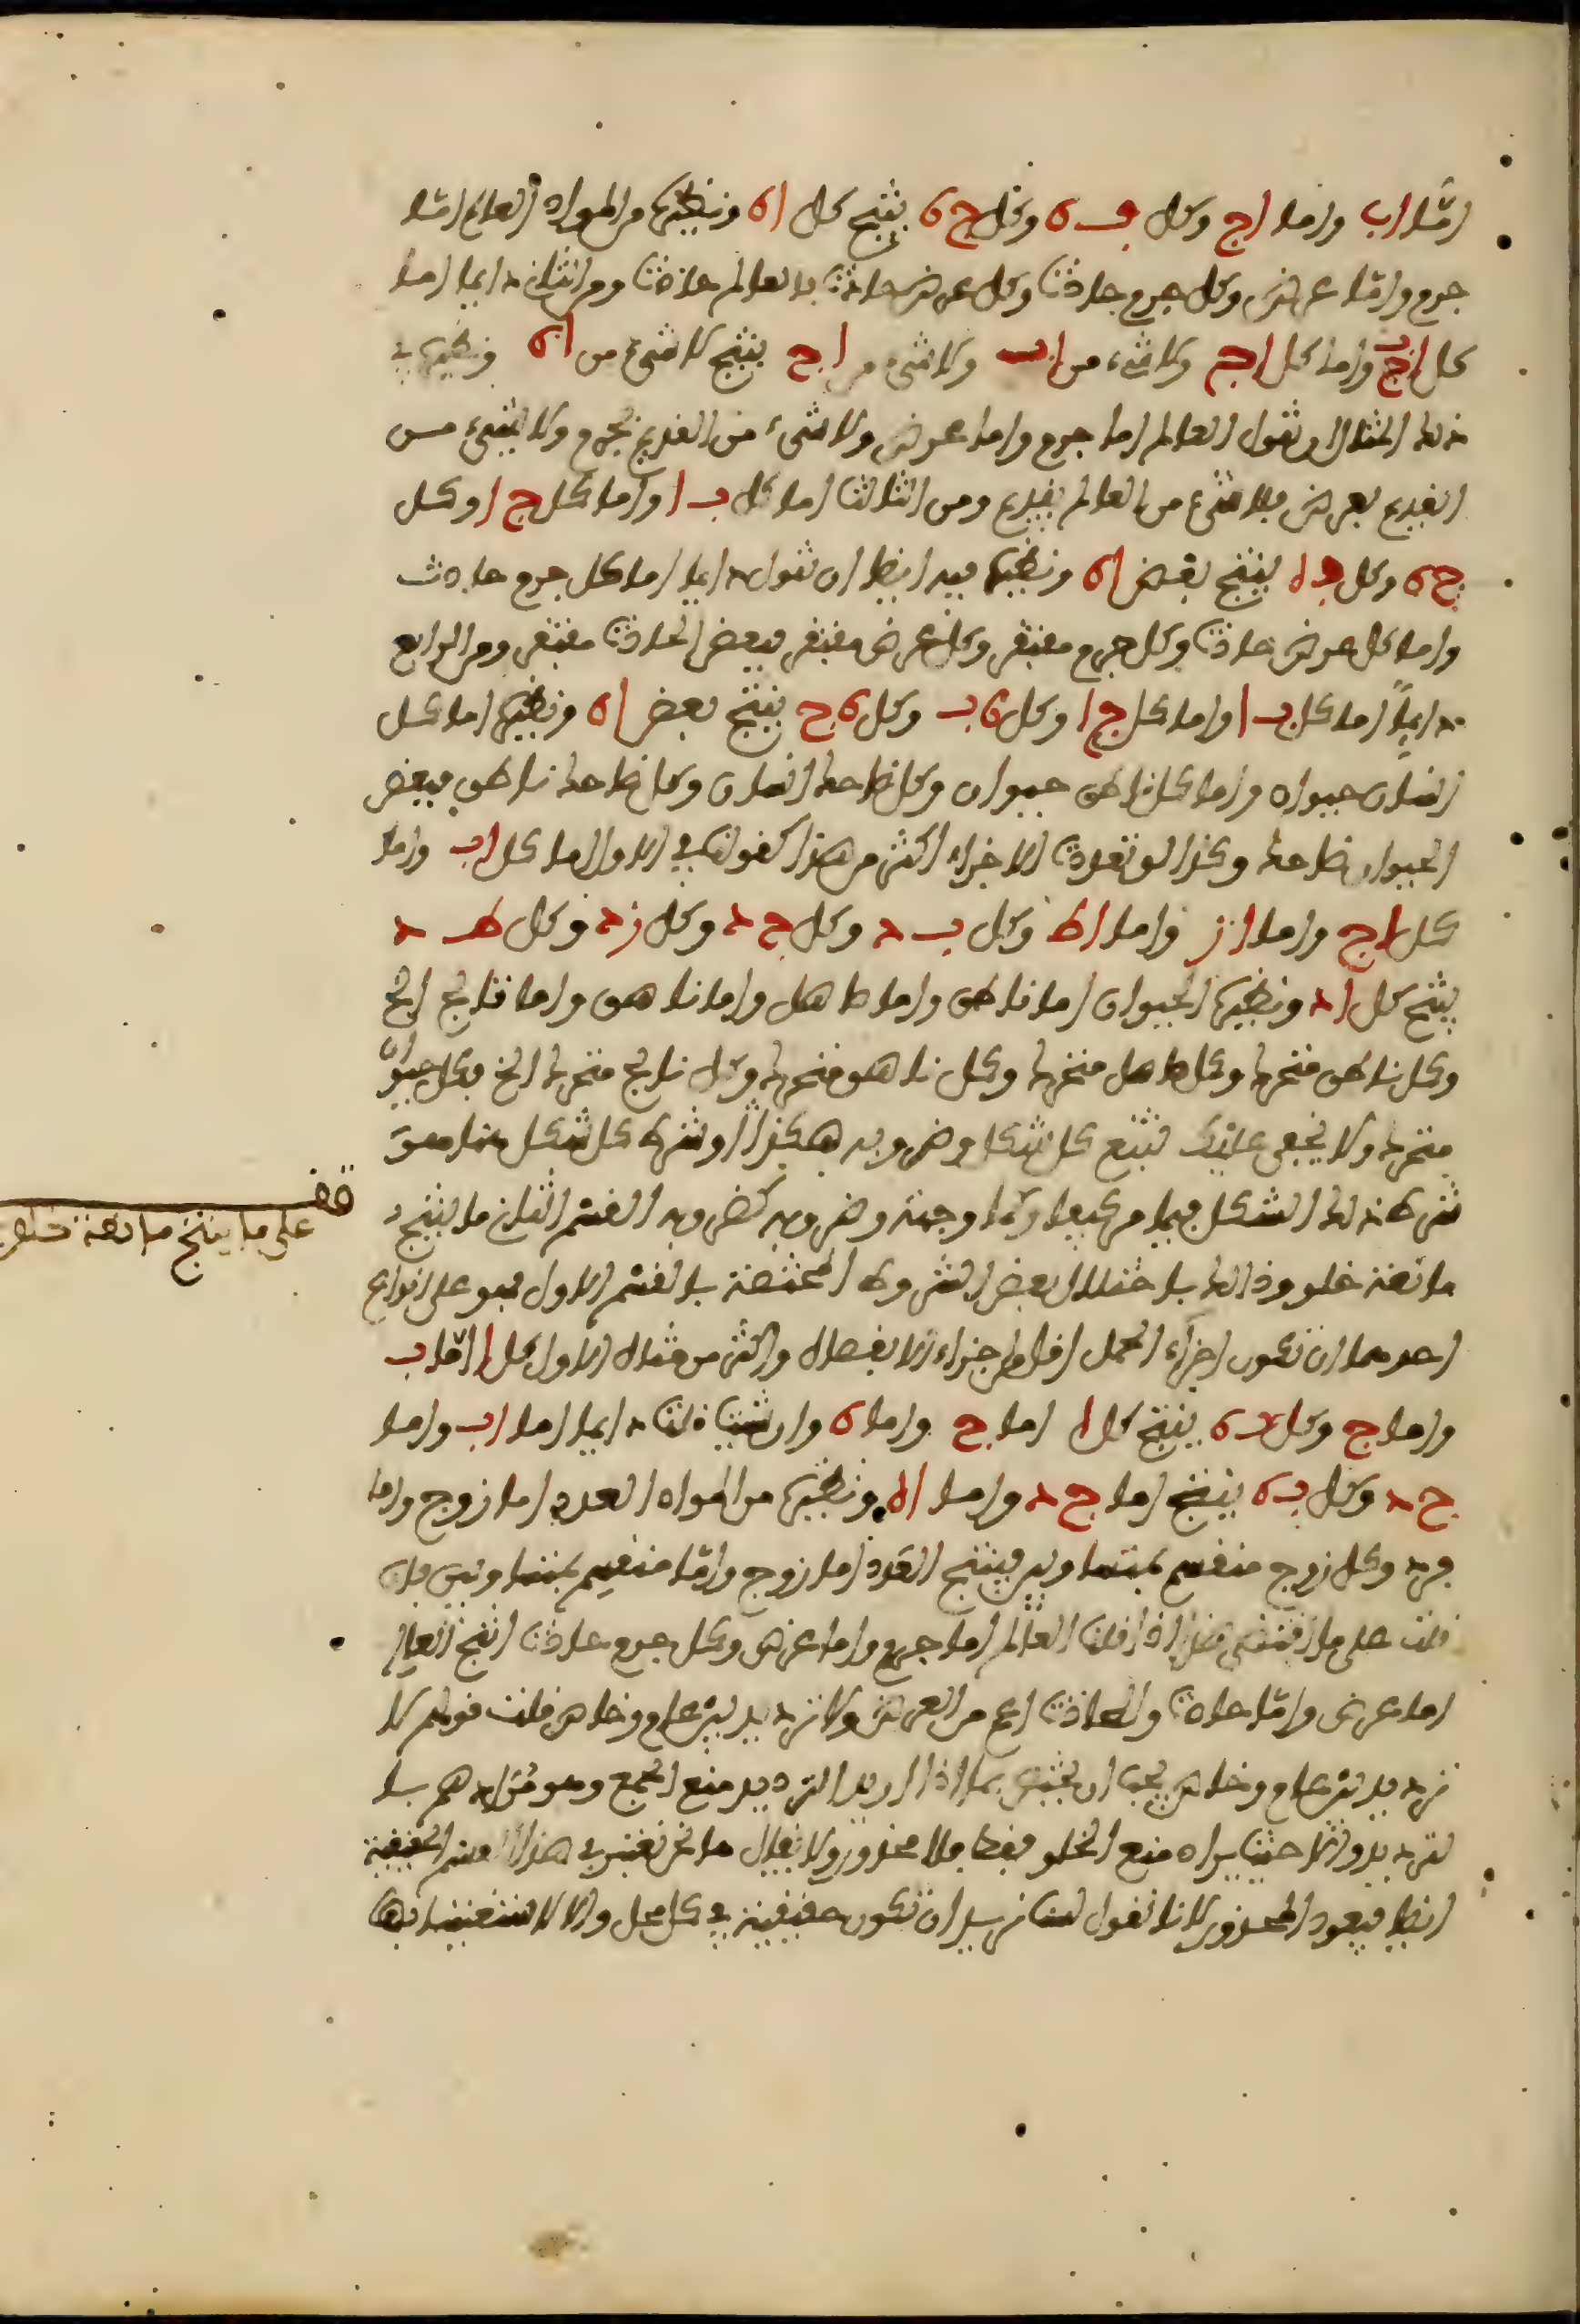 اما اب واما اج وكل ب د وكل ج د ينتج كل اد ونظيرها من المواد العالم اما
جرم واما عرض وكل جرم حادث وكل عرض حادث فالعالم حادث ومن الثاني دايما اما
كل اب واما كل اج ولا شيء من اب ولا شيء من اج ينتج لا شيء من اد ونظيرها في
ذلك المثال ان تقول العالم اما جرم واما عرض ولا شيء من القديم بجرم ولا شيء من
القديم بعرض فلا شيء من العالم بقديم ومن الثالث اما كل ب ا واما كل ج ا وكل
ج د وكل ب د ينتج بعض اد ونظيرها فيه ايضا ان تقول دايما اما كل جرم حادث
واما كل عرض حادث وكل جرم مفتقر وكل عرض مفتقر فبعض الحادث مفتقر ومن الرابع
دايما اما كل ب ا واما كل ج ا وكل د ب وكل د ج ينتج بعض اد ونظيرها اما كل
انسان حيوان واما كل ناطق حيوان وكل ضاحك انسان وكل ضاحك ناطق فبعض
الحيوان ضاحك وكذا لو تعددت الاجزاء اكثر من هذا كقولنا في الاول اما كل اب واما
كل اج واما از واما اط وكل ب د وكل ج د وكل ز د وكل ط د
ينتج كل اد ونظيرها الحيوان اما ناطق واما صاهل واما ناهق واما نابح الخ
وكل ناطق متحرك وكل صاهل متحرك وكل ناهق متحرك وكل نابح متحرك الخ فكل حيوان
متحرك ولا يخفى عليك تتبع كل شكل وضروبه هكذا وشرط كل شكل هنا هو
شرط ذلك الشكل فيما مر كيفا وكما وجهة وضروبه كضروبه القسم الثاني ما ينتج
مانعة خلو وذلك باختلال بعض الشروط المختصة بالقسم الاول فهو على انواع
احدهما ان تكون اجزاء الحمل اقل من اجزاء الانفصال واكثر من مثال الاول كل ا اما ب
واما ج وكل ب د ينتج كل ا اما ج واما د وان شئت قلت دايما اما اب واما
ج د وكل ب د ينتج اما ج د واما اد ونظيرها من المواد العدد اما زوج واما
فرد وكل زوج منقسم بمتساويين فينتج العدد اما زوج واما منقسم بمتساويين فان
قلت على ما اقتضى هذا اذا قلت العالم اما جرم واما عرض وكل جرم حادث انتج العالم
اما عرض واما حادث والحادث اعم من العرض ولا ترديد بين عام وخاص قلت قولهم لا
ترديد بين عام وخاص يجب ان يختص بما اذا اريد الترديد منع الجمع وهو مرادهم با
لترديد واما حيث يراد منع الخلو فقط فلا محذور ولا يقال ما تعتبر في هذا القسم الحقيقية
ايضا فيعود المحذور لانا نقول لسنا نريد ان تكون حقيقية في كل محل والا لاستغنينا بها
قف على ما ينتج مانعة خلو